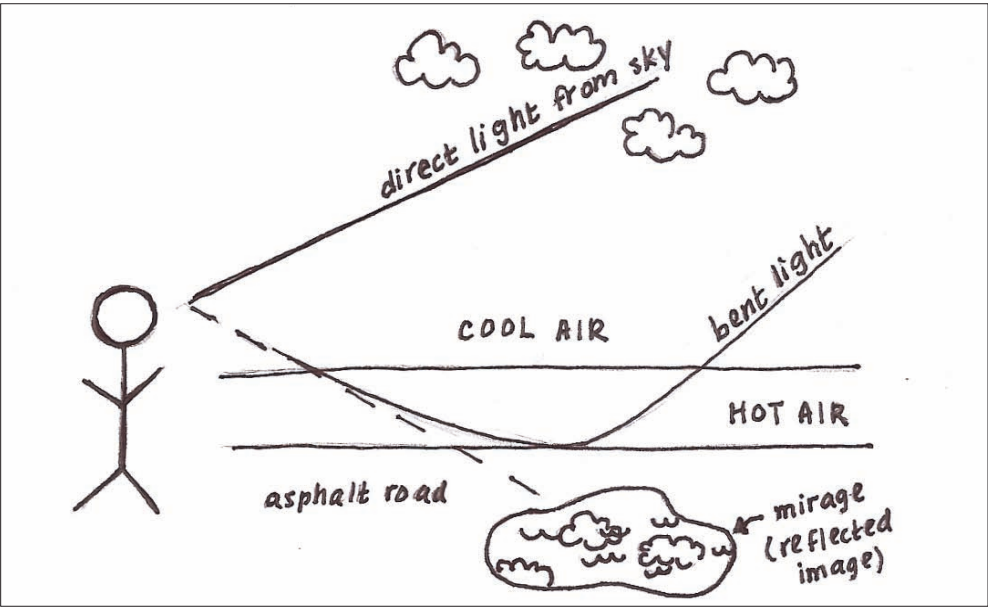 direct light from sky
bent light
COOL AIR
HOT AIR
asphalt road
mirage
(reflected
image)